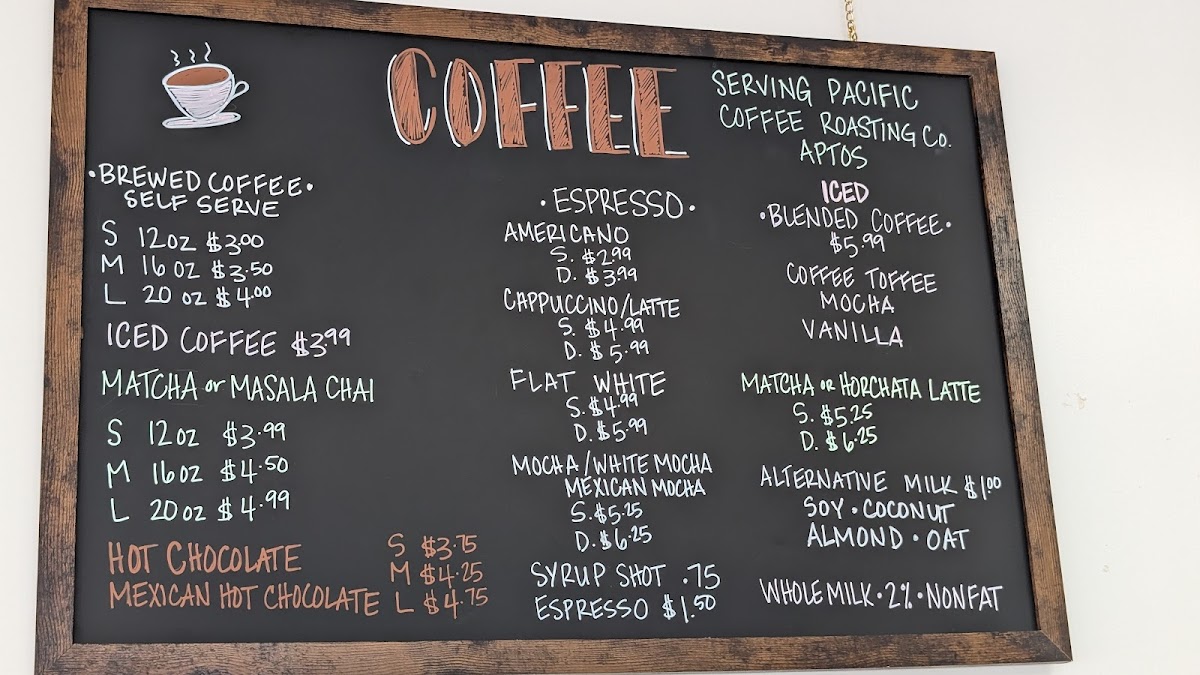 COFFEE
SERVING PACIFIC
COFFEE ROASTING Co.
APTOS
•BREWED COFFEE•
SELF SERVE
S 12oz $3.00
M 16oz $3.50
L 20oz $4.00
ICED COFFEE $3.99
MATCHA or MASALA CHAI
S 12oz $3.99
M 16oz $4.50
L 20oz $4.99
HOT CHOCOLATE
MEXICAN HOT CHOCOLATE
S $3.75
M $4.25
L $4.75
•ESPRESSO•
AMERICANO
S. $2.99
D. $3.99
CAPPUCCINO/LATTE
S. $4.99
D. $5.99
FLAT WHITE
S. $4.99
D. $5.99
MOCHA/WHITE MOCHA
MEXICAN MOCHA
S. $5.25
D. $6.25
SYRUP SHOT .75
ESPRESSO $1.50
ICED
•BLENDED COFFEE•
$5.99
COFFEE TOFFEE
MOCHA
VANILLA
MATCHA OR HORCHATA LATTE
S. $5.25
D. $6.25
ALTERNATIVE MILK $1.00
SOY • COCONUT
ALMOND • OAT
WHOLE MILK • 2% • NONFAT